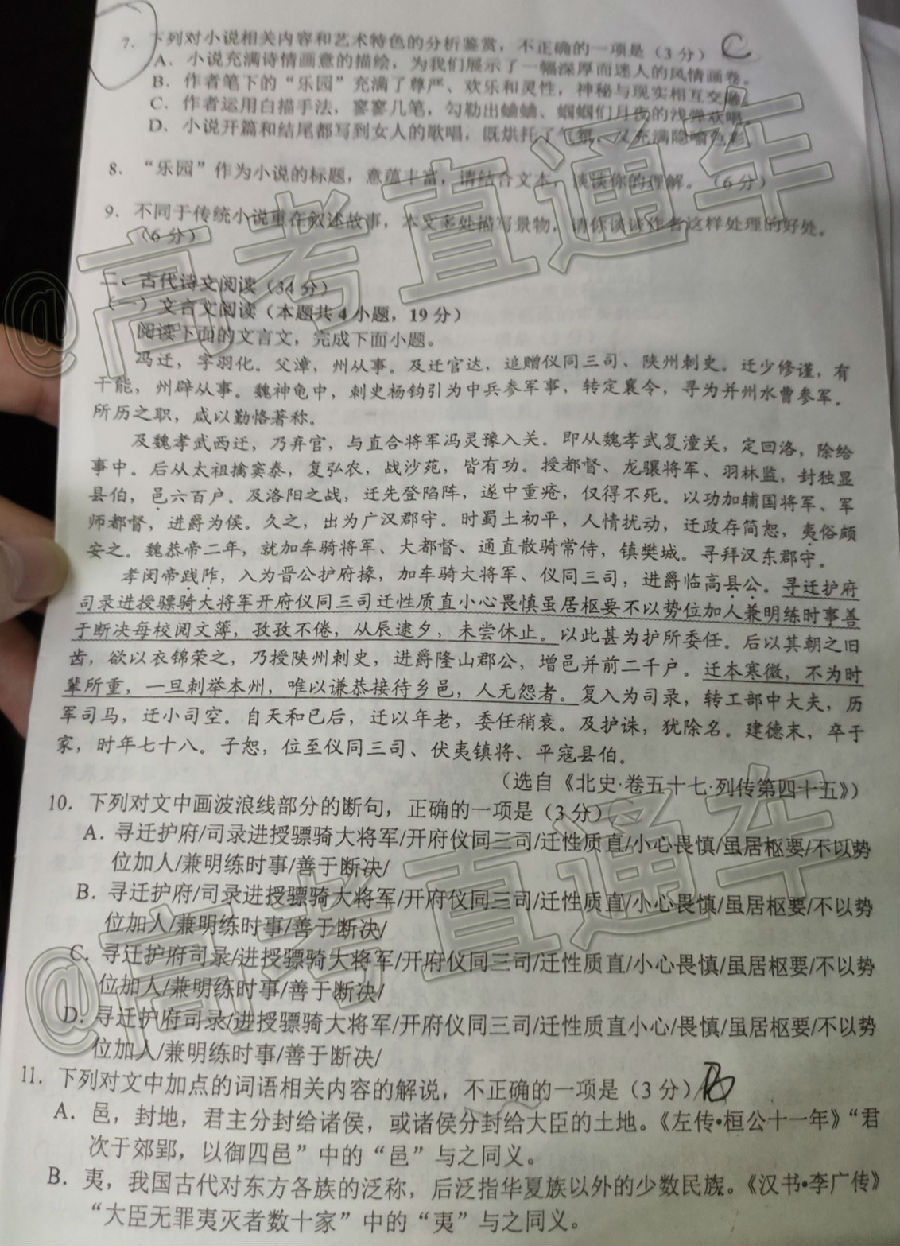 7. 下列对小说相关内容和艺术特色的分析鉴赏，不正确的一项是（3 分） C
A. 小说充满诗情画意的描绘，为我们展示了一幅深厚而迷人的风情画卷。
B. 作者笔下的“乐园”充满了尊严、欢乐和灵性，神秘与现实相互交融。
C. 作者运用白描手法，寥寥几笔，勾勒出蛐蛐、蝈蝈们月夜的浅弹欢唱。
D. 小说开篇和结尾都写到女人的歌唱，既烘托了气氛，又充满隐喻色彩。
8. “乐园”作为小说的标题，意蕴丰富，请结合文本，谈谈你的理解。（6 分）
9. 不同于传统小说重在叙述故事，本文多处描写景物，请你谈谈作者这样处理的好处。
（6 分）
二、古代诗文阅读（34 分）
（一）文言文阅读（本题共 4 小题，19 分）
阅读下面的文言文，完成下面小题。
冯迁，字羽化。父漳，州从事。及迁官达，追赠仪同三司、陕州刺史。迁少修谨，有
干能，州辟从事。魏神龟中，刺史杨钧引为中兵参军事，转定襄令，寻为并州水曹参军。
所历之职，咸以勤恪著称。
及魏孝武西迁，乃弃官，与直合将军冯灵豫入关。即从魏孝武复潼关，定回洛，除给
事中。后从太祖擒窦泰，复弘农，战沙苑，皆有功。授都督、龙骧将军、羽林监，封独显
县伯，邑六百户。及洛阳之战，迁先登陷阵，遂中重疮，仅得不死。以功加辅国将军、军
师都督，进爵为侯。久之，出为广汉郡守。时蜀土初平，人情扰动，迁政存简恕，夷俗颇
安之。魏恭帝二年，就加车骑将军、大都督、通直散骑常侍，镇樊城。寻拜汉东郡守。
孝闵帝践阼，入为晋公护府掾，加车骑大将军、仪同三司，进爵临高县公。寻迁护府
司录进授骠骑大将军开府仪同三司迁性质直小心畏慎虽居枢要不以势位加人兼明练时事善
于断决每校阅文簿，孜孜不倦，从辰逮夕，未尝休止。以此甚为护所委任。后以其朝之旧
齿，欲以衣锦荣之，乃授陕州刺史，进爵隆山郡公，增邑并前二千户。迁本寒微，不为时
辈所重，一旦刺举本州，唯以谦恭接待乡邑，人无怨者。复入为司录，转工部中大夫，历
军司马，迁小司空。自天和已后，迁以年老，委任稍衰。及护诛，犹除名。建德末，卒于
家，时年七十八。子恕，位至仪同三司、伏夷镇将、平寇县伯。
（选自《北史·卷五十七·列传第四十五》）
10. 下列对文中画波浪线部分的断句，正确的一项是（3 分）
A. 寻迁护府/司录进授骠骑大将军/开府仪同三司/迁性质直/小心畏慎/虽居枢要/不以势
位加人/兼明练时事/善于断决/
B. 寻迁护府/司录进授骠骑大将军/开府仪同三司/迁性质直/小心畏慎/虽居枢要/不以势
位加人/兼明练时事/善于断决/
C. 寻迁护府司录/进授骠骑大将军/开府仪同三司/迁性质直/小心畏慎/虽居枢要/不以势
位加人/兼明练时事/善于断决/
D. 寻迁护府司录/进授骠骑大将军/开府仪同三司/迁性质直小心/畏慎/虽居枢要/不以势
位加人/兼明练时事/善于断决/
11. 下列对文中加点的词语相关内容的解说，不正确的一项是（3 分） B
A. 邑，封地，君主分封给诸侯，或诸侯分封给大臣的土地。《左传•桓公十一年》“君
次于郊郢，以御四邑”中的“邑”与之同义。
B. 夷，我国古代对东方各族的泛称，后泛指华夏族以外的少数民族。《汉书•李广传》
“大臣无罪夷灭者数十家”中的“夷”与之同义。
@高考直通车
@高考直通车